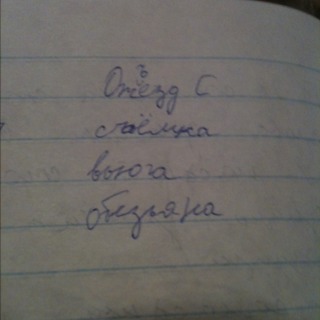 Отъезд С
съёмка
вьюга
обезьяна